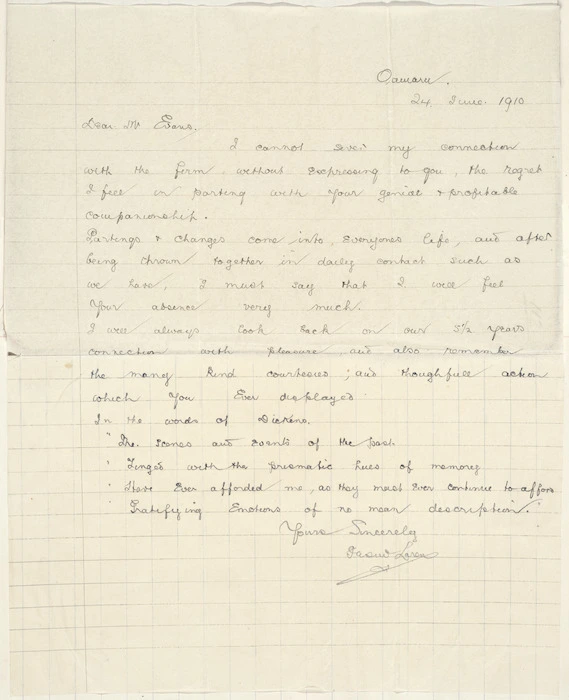 Oamaru.
24 June. 1910
Dear Mr Evans.
I cannot sever my connection
with the firm, without expressing to you, the regret
I feel in parting with your genial & profitable
companionship.
Partings & changes come into, everyones life, and after
being thrown together in daily contact such as
we have, I must say that I will feel
your absence very much.
I will always look back on our 5½ years
connection with pleasure, and also remember
the many kind courtesies; and thoughfull action
which you ever displayed.
In the words of Dickens.
"The. scenes and events of the past.
' Tinged with the prismatic hues of memory
' Have Ever afforded me, as they must Ever continue to afford
' Gratifying Emotions of no mean description."
Yours Sincerely
David